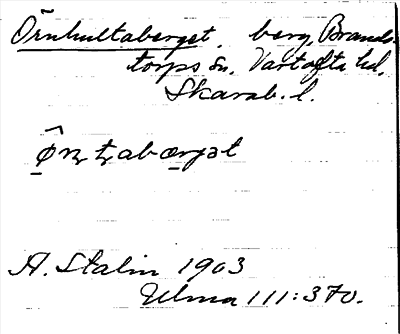 Örnhultaberget, berg, Brands-
torps sn, Vartofta hd,
Skarab. l.
A. Stalin 1903
Ulma 111:370.